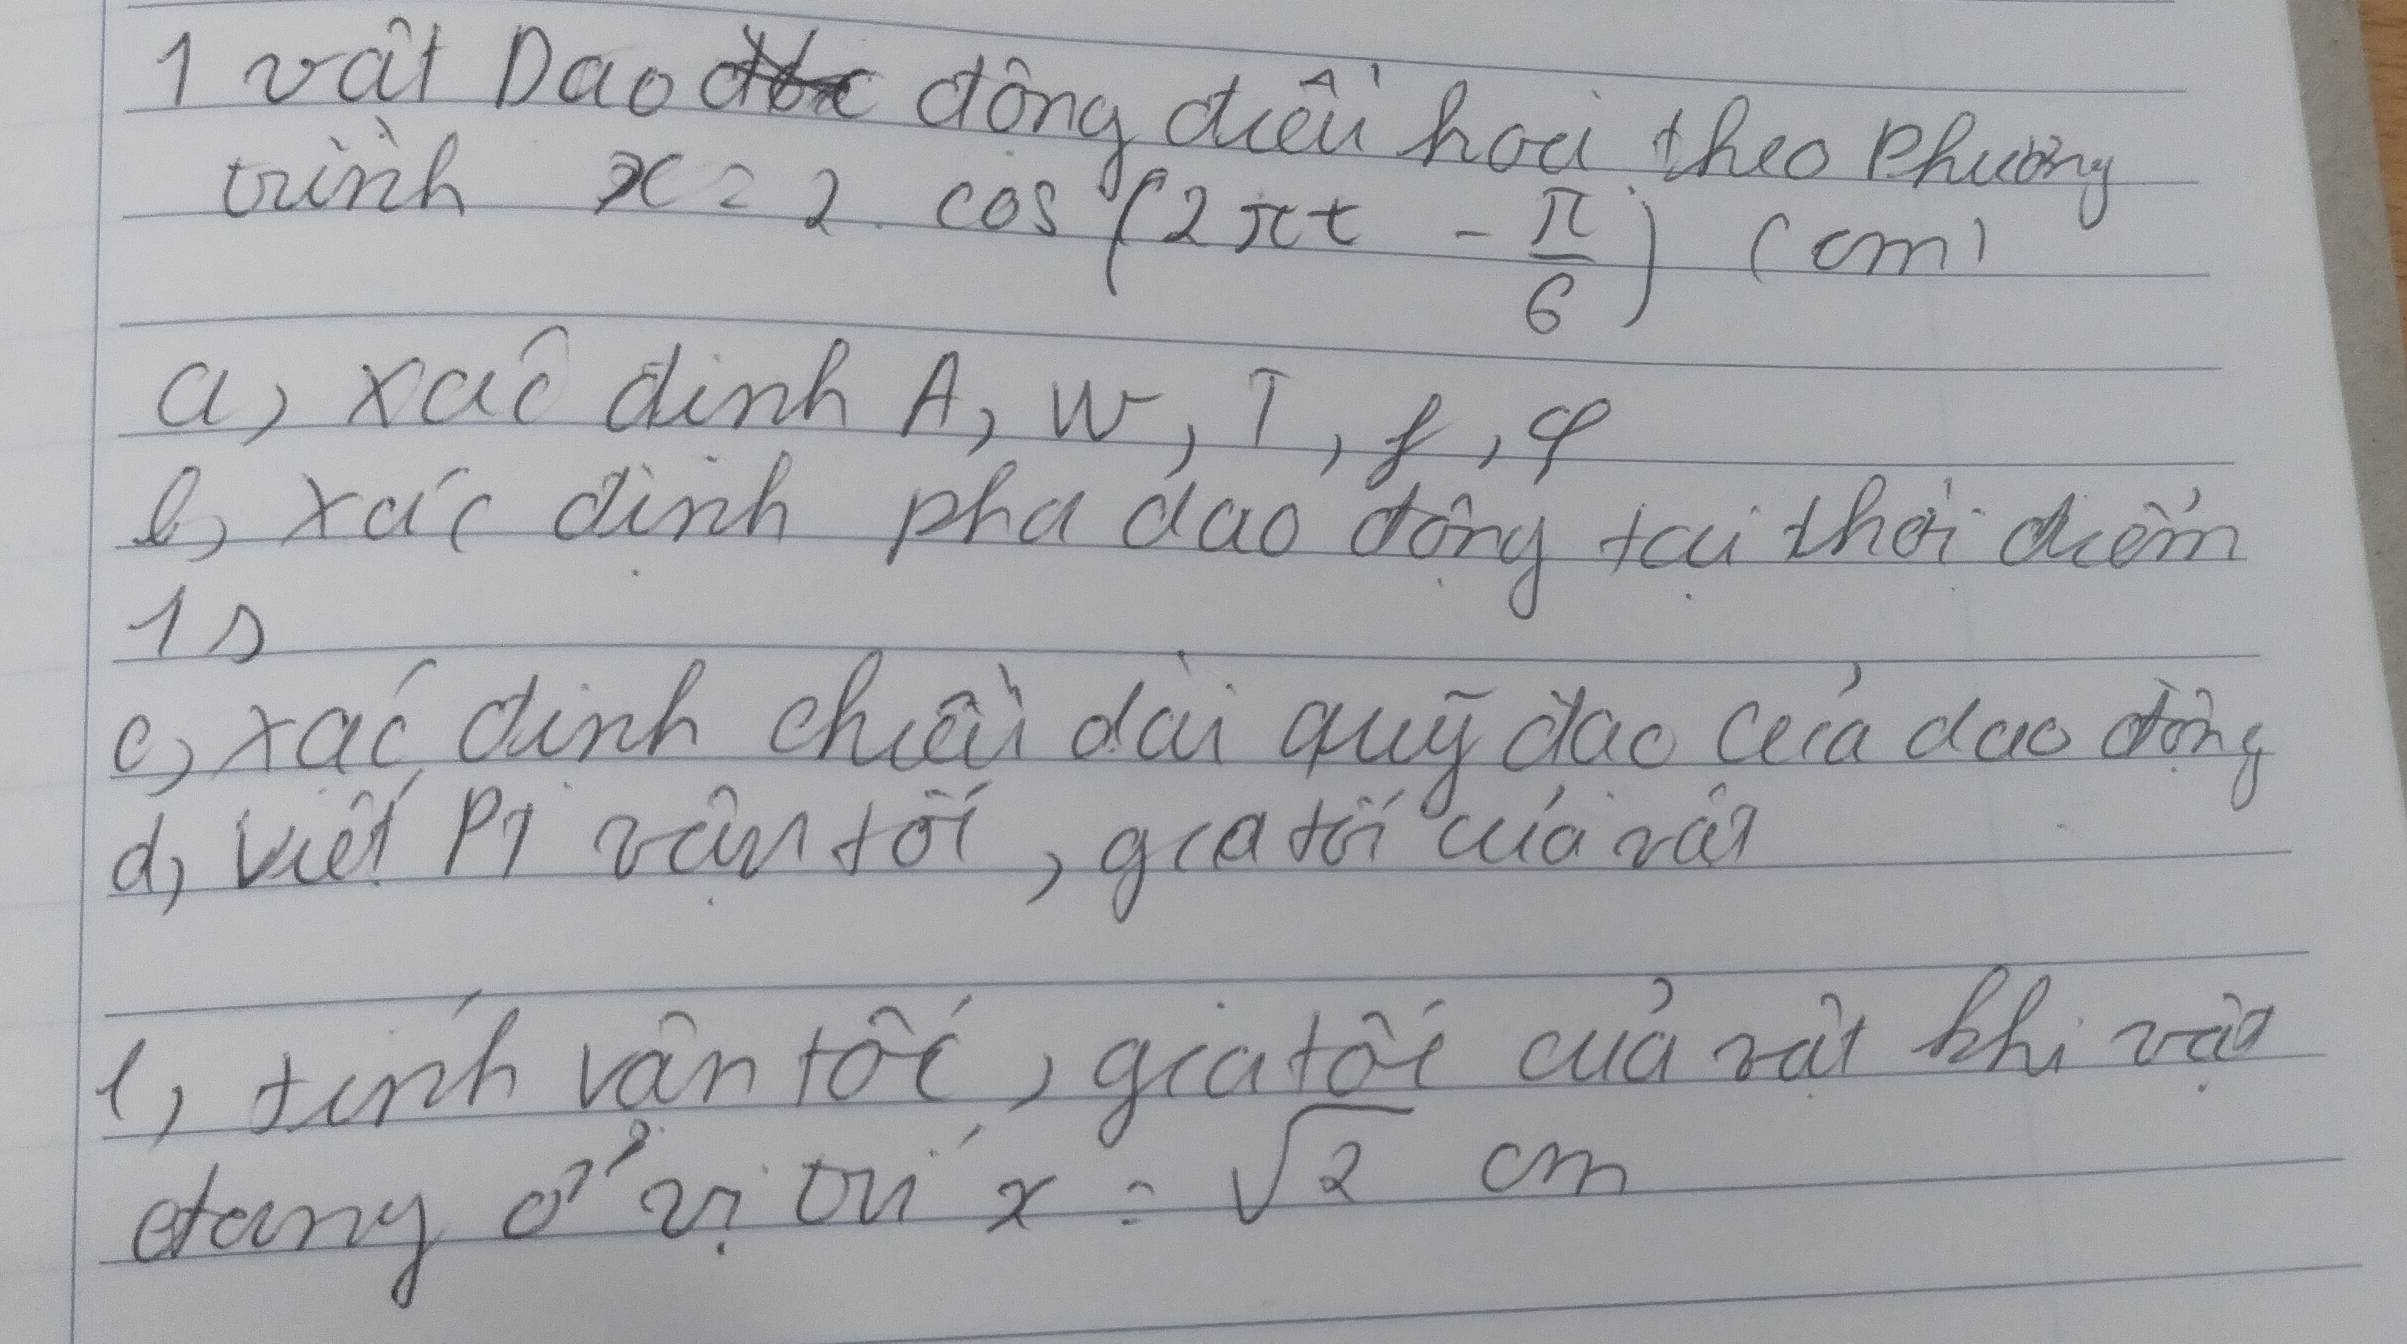 1 vật Dao động điều hoà theo phương
trình x = 2. cos (2πt - π/6) (cm)
a, xác định A, W, T, f, φ
b, xác định pha dao động tại thời điểm
1s
c, xác định chiều dài quỹ đạo của dao động
d, viết PT vận tốc, gia tốc của vật
e, tính vận tốc, gia tốc của vật khi vật
đang ở vị trí x = √2 cm